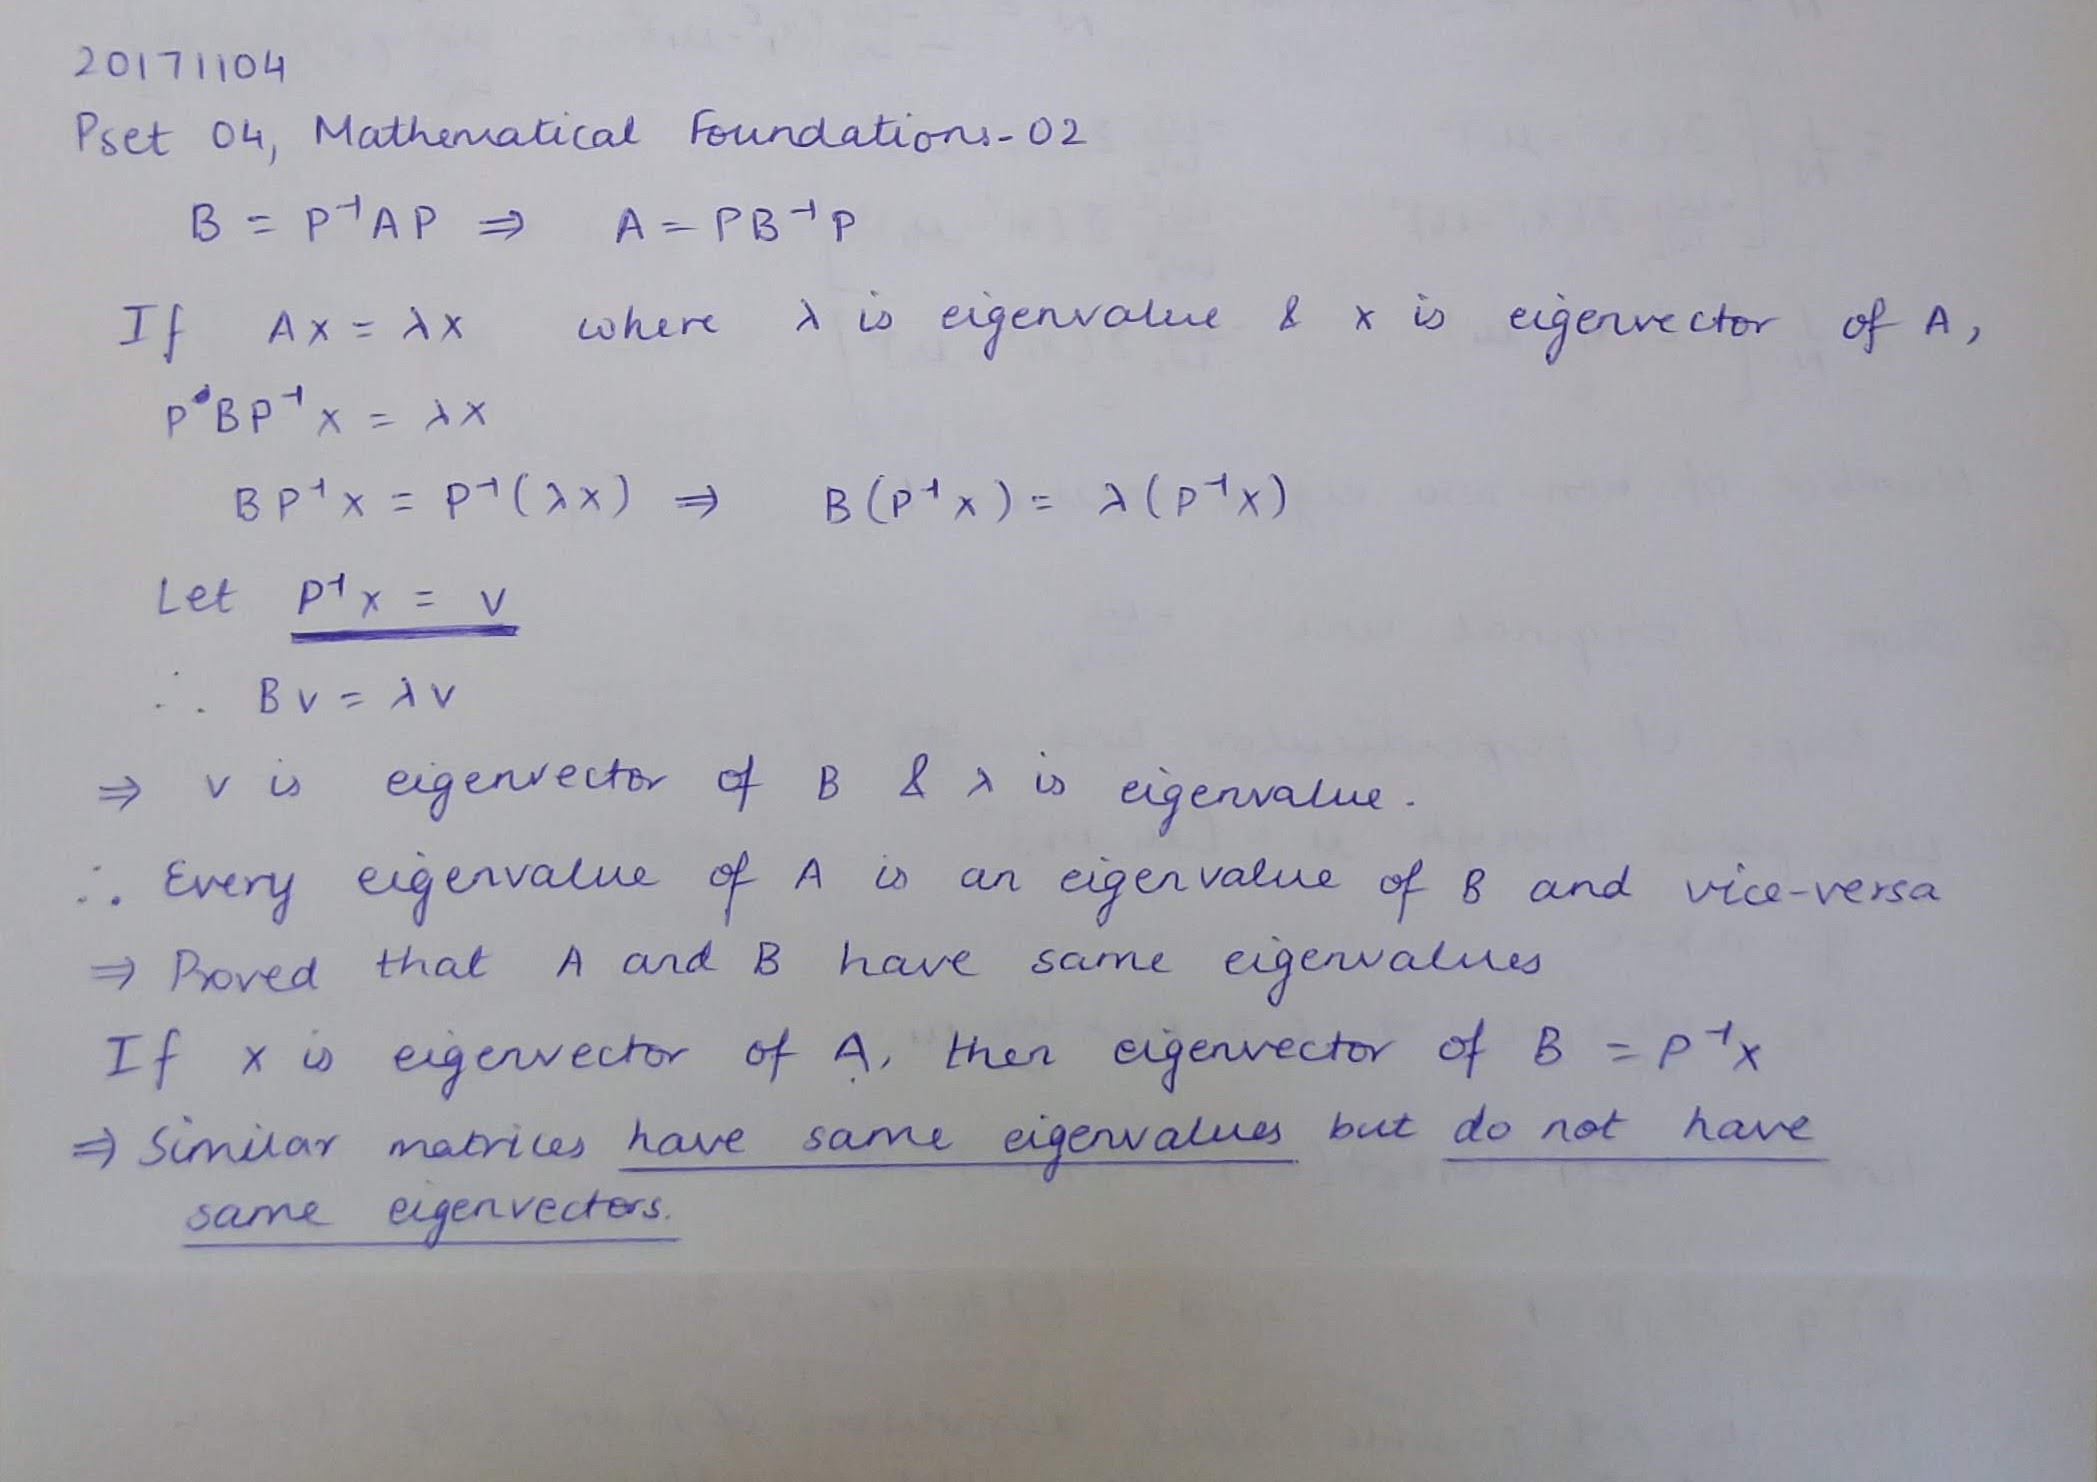 20171104
Pset 04, Mathematical Foundations-02
B = P⁻¹AP ⇒ A = PB⁻¹P
If Ax = λx where λ is eigenvalue & x is eigenvector of A,
PBP⁻¹x = λx
BP⁻¹x = P⁻¹(λx) ⇒ B(P⁻¹x) = λ(P⁻¹x)
Let P⁻¹x = v
∴ Bv = λv
⇒ v is eigenvector of B & λ is eigenvalue.
∴ Every eigenvalue of A is an eigenvalue of B and vice-versa
⇒ Proved that A and B have same eigenvalues
If x is eigenvector of A, then eigenvector of B = P⁻¹x
⇒ Similar matrices have same eigenvalues but do not have
same eigenvectors.